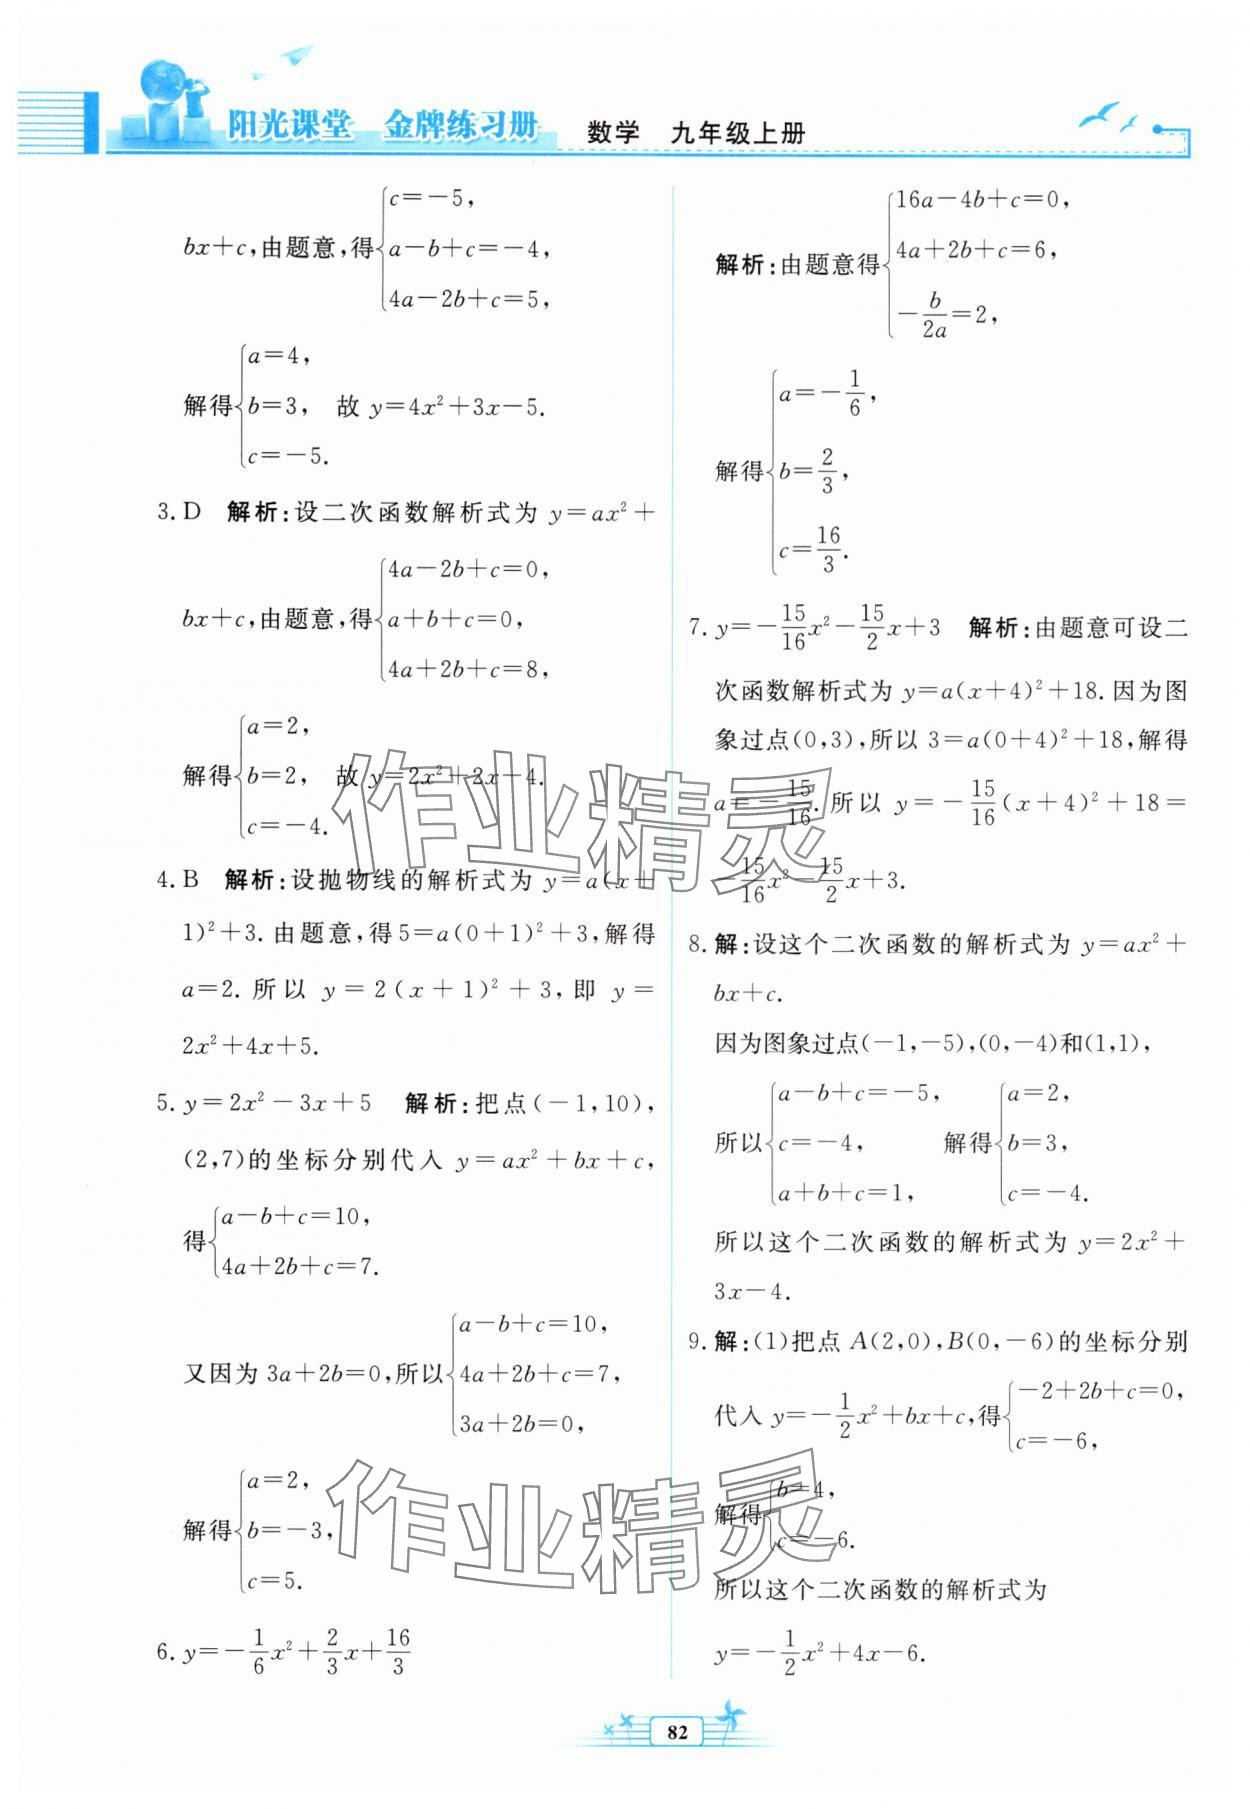 阳光课堂 金牌练习册 数学 九年级上册
bx+c,由题意,得{c=-5, a-b+c=-4, 4a-2b+c=5,
解得{a=4, b=3, c=-5. 故 y=4x²+3x-5.
3. D 解析:设二次函数解析式为 y=ax²+
bx+c,由题意,得{4a-2b+c=0, a+b+c=0, 4a+2b+c=8,
解得{a=2, b=2, c=-4. 故 y=2x²+2x-4.
4. B 解析:设抛物线的解析式为 y=a(x+
1)²+3. 由题意,得5=a(0+1)²+3,解得
a=2. 所以 y=2(x+1)²+3,即 y=
2x²+4x+5.
5. y=2x²-3x+5 解析:把点(-1,10),
(2,7)的坐标分别代入 y=ax²+bx+c,
得{a-b+c=10, 4a+2b+c=7.
又因为 3a+2b=0,所以{a-b+c=10, 4a+2b+c=7, 3a+2b=0,
解得{a=2, b=-3, c=5.
6. y=-1/6x²+2/3x+16/3
解析:由题意得{16a-4b+c=0, 4a+2b+c=6, -b/2a=2,
解得{a=-1/6, b=2/3, c=16/3.
7. y=-15/16x²-15/2x+3 解析:由题意可设二
次函数解析式为 y=a(x+4)²+18. 因为图
象过点(0,3),所以 3=a(0+4)²+18,解得
a=-15/16. 所以 y=-15/16(x+4)²+18=
-15/16x²-15/2x+3.
8. 解:设这个二次函数的解析式为 y=ax²+
bx+c.
因为图象过点(-1,-5),(0,-4)和(1,1),
所以{a-b+c=-5, c=-4, a+b+c=1, 解得{a=2, b=3, c=-4.
所以这个二次函数的解析式为 y=2x²+
3x-4.
9. 解:(1)把点 A(2,0),B(0,-6)的坐标分别
代入 y=-1/2x²+bx+c,得{-2+2b+c=0, c=-6,
解得{b=4, c=-6.
所以这个二次函数的解析式为
y=-1/2x²+4x-6.
作业精灵
作业精灵
82